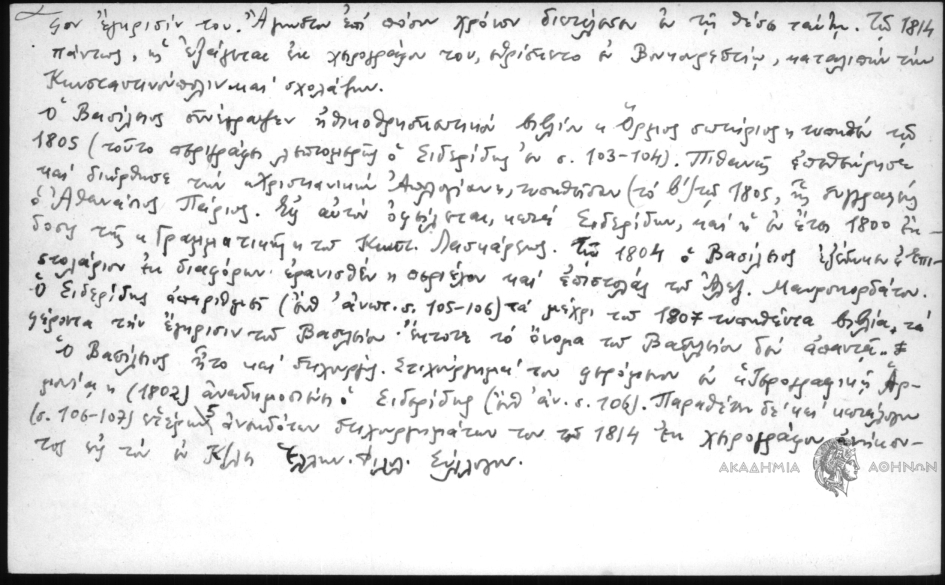 σον ἔγκρισίν του. Ἄγνωστον ἐπὶ πόσον χρόνον διετέλεσεν ἐν τῇ θέσει ταύτῃ. Τῷ 1814
πάντως, ὡς ἐξάγεται ἐκ χειρογράφου του, εὑρίσκετο ἐν Βουκουρεστίῳ, καταλιπὼν τὴν
Κωνσταντινούπολιν καὶ σχολάζων.
Ὁ Βασίλειος συνέγραψεν ἠθικοθρησκευτικὸν βιβλίον «Ὅρμος σωτήριος» τυπωθὲν τῷ
1805 (τοῦτο περιγράφει λεπτομερῶς ὁ Σιδερίδης ἐν σ. 103-104). Πιθανῶς ἐπεθεώρησε
καὶ διώρθωσε τὴν «Χριστιανικὴν Ἀπολογίαν», τυπωθεῖσαν (τὸ β΄) τῷ 1805, ἧς συγγραφεὺς
ὁ Ἀθανάσιος Πάριος. Εἰς αὐτὸν ὀφείλεται, κατὰ Σιδερίδην, καὶ ἡ ἐν ἔτει 1800 ἔκ-
δοσις τῆς «Γραμματικῆς» τοῦ Κωνστ. Λασκάρεως. Τῷ 1804 ὁ Βασίλειος ἐξέδωκεν «Ἐπι-
στολάριον ἐκ διαφόρων ἐρανισθὲν» περιέχον καὶ ἐπιστολὰς τοῦ Ἀλεξ. Μαυροκορδάτου.
Ὁ Σιδερίδης ἀπαριθμεῖ (ἔνθ' ἀνωτ. σ. 105-106) τὰ μέχρι τοῦ 1807 τυπωθέντα βιβλία, τὰ
φέροντα τὴν ἔγκρισιν τοῦ Βασιλείου. Ἔκτοτε τὸ ὄνομα τοῦ Βασιλείου δὲν ἀπαντᾷ.
Ὁ Βασίλειος ἦτο καὶ στιχουργός. Στιχούργημά του φερόμενον ἐν «Ἱερογραφικῇ Ἁρ-
μονίᾳ» (1802) ἀναδημοσιεύει ὁ Σιδερίδης (ἔνθ' ἀν. σ. 106). Παραθέτει δὲ καὶ κατάλογον
(σ. 106-107) ἑτέρων 5 ἀνεκδότων στιχουργημάτων του τοῦ 1814 ἐκ χειρογράφου ἀνήκον-
τος εἰς τὸν ἐν Κ/λει Ἑλλην. Φιλολ. Σύλλογον.
ΑΚΑΔΗΜΙΑ ΑΘΗΝΩΝ